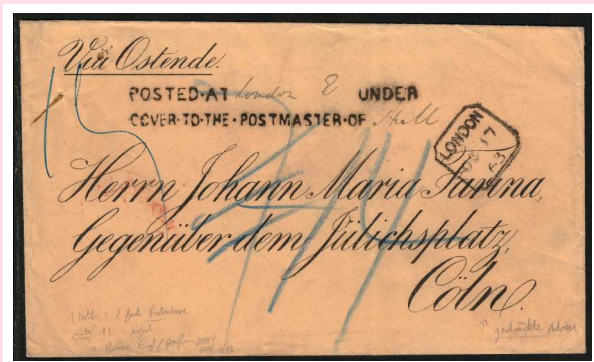 Via Ostende.
POSTED·AT London E UNDER
COVER·TO·THE·POSTMASTER·OF Hull
LONDON
17
63
Herrn Johann Maria Farina,
Gegenüber dem Jülichsplatz,
Cöln.
gedruckte Adresse